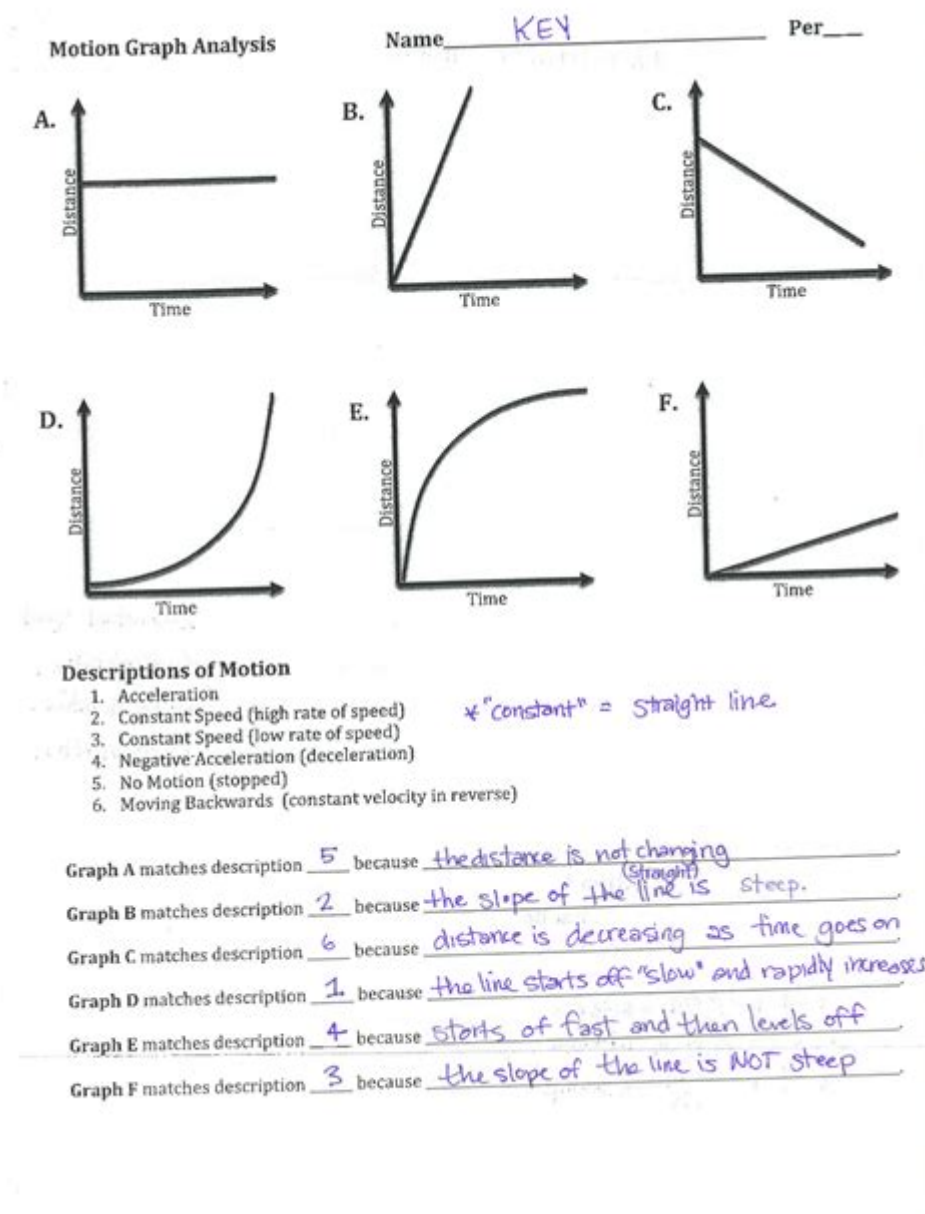 Motion Graph Analysis Name KEY Per
A. B. C.
Distance Distance Distance
Time Time Time
D. E. F.
Distance Distance Distance
Time Time Time
Descriptions of Motion
1. Acceleration
2. Constant Speed (high rate of speed)
* "constant" = straight line
3. Constant Speed (low rate of speed)
4. Negative Acceleration (deceleration)
5. No Motion (stopped)
6. Moving Backwards (constant velocity in reverse)
Graph A matches description 5 because the distance is not changing
(straight)
Graph B matches description 2 because the slope of the line is steep.
Graph C matches description 6 because distance is decreasing as time goes on
Graph D matches description 1 because the line starts off "slow" and rapidly increases
Graph E matches description 4 because starts of fast and then levels off
Graph F matches description 3 because the slope of the line is NOT steep